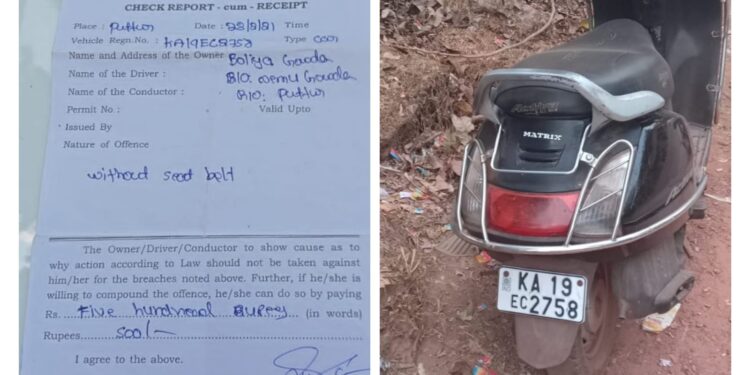 CHECK REPORT - cum - RECEIPT
Place : Puttur Date : 28/2/21 Time
Vehicle Regn.No. : KA19EC2758 Type
Name and Address of the Owner Boliya Gowda
Name of the Driver : S/O: Gowda
Name of the Conductor : R/O: Puttur
Permit No : Valid Upto
Issued By
Nature of Offence
without seat belt
The Owner/Driver/Conductor to show cause as to
why action according to Law should not be taken against
him/her for the breaches noted above. Further, if he/she is
willing to compound the offence, he/she can do so by paying
Rs. Five hundread Rupees (in words)
Rupees 500/-
I agree to the above.
Activa
MATRIX
KA 19
EC2758